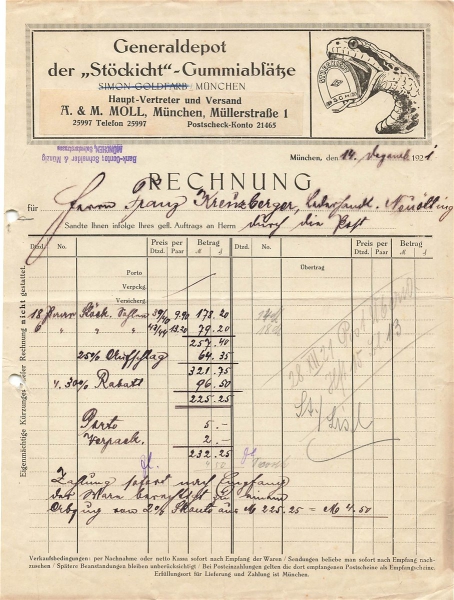 Generaldepot
der „Stöckicht"-Gummiabsätze
SIMON GOLDFARB / MÜNCHEN
Haupt-Vertreter und Versand
A. & M. MOLL, München, Müllerstraße 1
25997 Telefon 25997 Postscheck-Konto 21465
München, den 14. Dezemb. 1921
RECHNUNG
für Herrn Franz Kreuzberger, Lederhandl. Neuötting
Sandte Ihnen infolge Ihres gefl. Auftrags an Herrn durch die Post
Dtzd. No. Preis per Dtzd. Paar Betrag M ₰ Dtzd. No. Preis per Dtzd. Paar Betrag M ₰
Porto Übertrag
Verpckg.
Versicherg.
18 Paar Stöck. Sohlen 39/40 9.90 178.20
6 " " " 43/44 13.20 79.20
257.40
25% Aufschlag 64.35
321.75
30% Rabatt 96.50
225.25
Porto 5.-
Verpack. 2.-
232.25
28 XII 21
Zahlung sofort nach Empfang
der Ware berechtigt zu einem
Abzug von 2% Skonto aus M 225.25 = M 4.50
Eigenmächtige Kürzungen dieser Rechnung nicht gestattet.
Verkaufsbedingungen: per Nachnahme oder netto Kassa sofort nach Empfang der Waren / Sendungen beliebe man sofort nach Empfang nach-
zusehen / Spätere Beanstandungen bleiben unberücksichtigt / Bei Posteinzahlungen gelten die dort empfangenen Postscheine als Empfangscheine.
Erfüllungsort für Lieferung und Zahlung ist München.